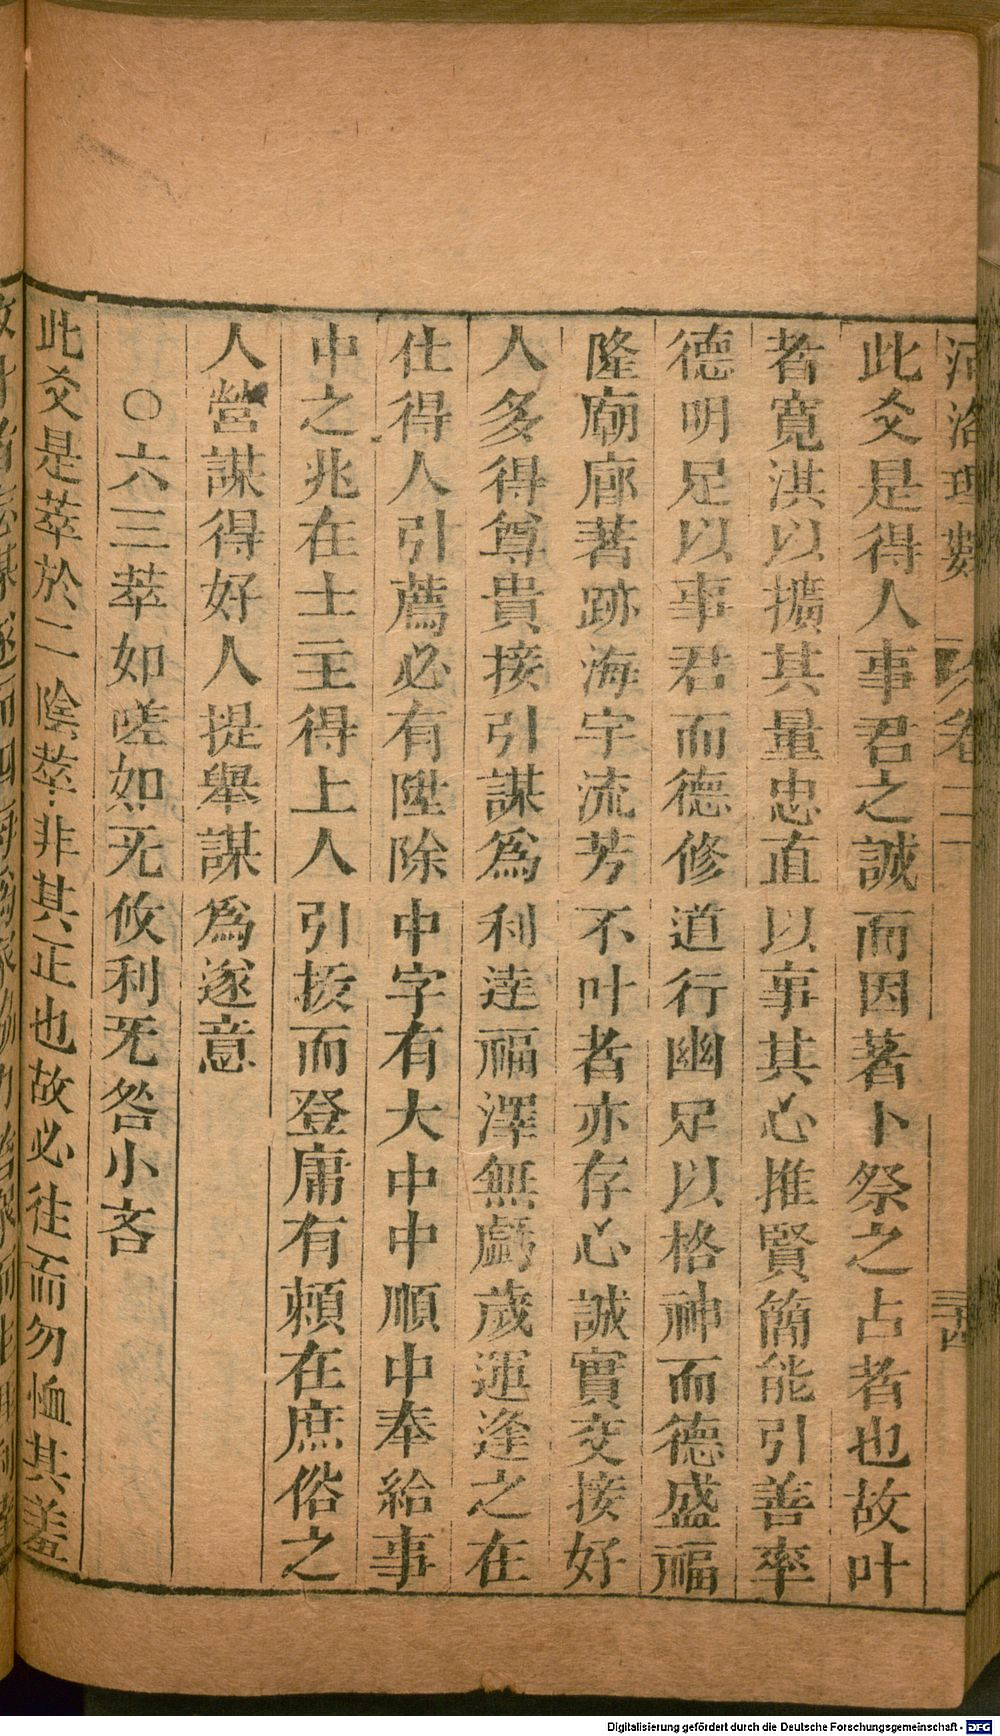 河洛理數 卷二
此爻是得人事君之誠而因著卜祭之占者也故叶
者寬淇以擴其量忠直以事其心推賢簡能引善率
德明足以事君而德修道行幽足以格神而德盛福
隆廟廊著跡海宇流芳不叶者亦存心誠實交接好
人多得尊貴接引謀為利達福澤無虧歲運逢之在
仕得人引薦必有陞除中字有大中中順中奉給事
中之兆在士主得上人引拔而登庸有賴在庶俗之
人營謀得好人提舉謀為遂意
〇六三萃如嗟如无攸利无咎小吝
此爻是萃於二陰萃非其正也故必往而勿恤其羞
Digitalisierung gefördert durch die Deutsche Forschungsgemeinschaft - DFG